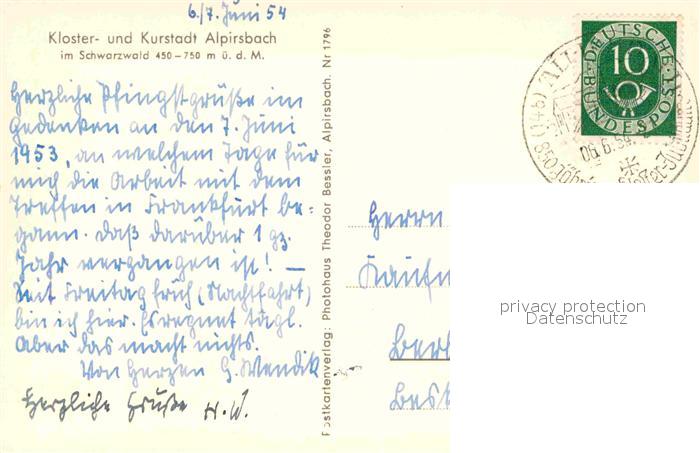 6./7. Juni 54
Kloster- und Kurstadt Alpirsbach
im Schwarzwald 450–750 m ü. d. M.
Herzliche Pfingstgrüße im
Gedenken an den 7. Juni
1953, an welchem Tage für
mich die Arbeit mit dem
Treffen in Frankfurt be=
gann. Daß darüber 1 gz.
Jahr vergangen ist! —
Seit Freitag früh (Nachtfahrt)
bin ich hier. Es regnet tägl.
Aber das macht nichts.
Von Herzen G. Wendik
Herzliche Grüße H. W.
Postkartenverlag: Photohaus Theodor Bessler, Alpirsbach. Nr 1796
DEUTSCHE
BUNDESPOST
10
(14b)
06.6.54
850
Herrn
Kaufm
Ber
Best
privacy protection
Datenschutz